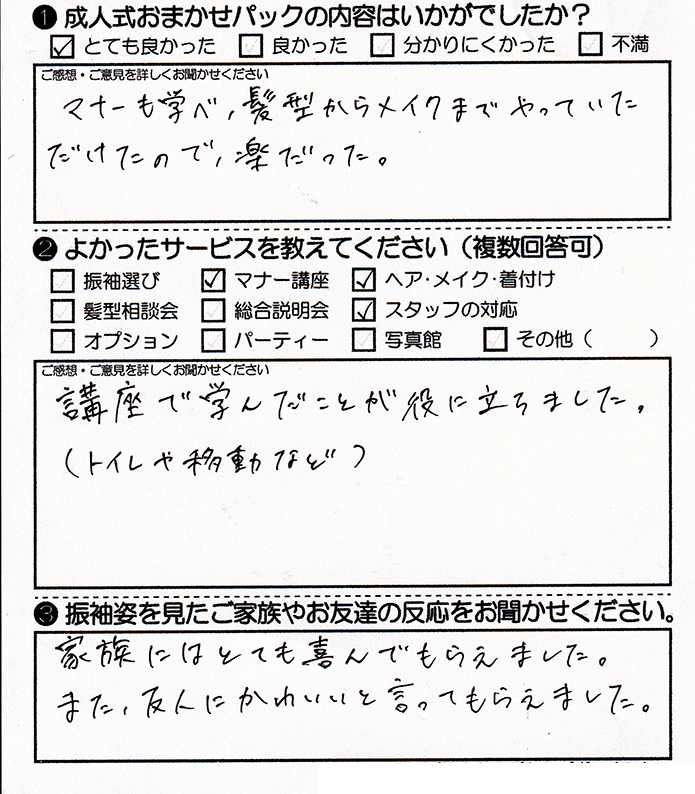 ❶ 成人式おまかせパックの内容はいかがでしたか？
☑ とても良かった □ 良かった □ 分かりにくかった □ 不満
ご感想・ご意見を詳しくお聞かせください
マナーも学べ，髪型からメイクまでやっていた
だけたので，楽だった。
❷ よかったサービスを教えてください（複数回答可）
□ 振袖選び ☑ マナー講座 ☑ ヘア・メイク・着付け
□ 髪型相談会 □ 総合説明会 ☑ スタッフの対応
□ オプション □ パーティー □ 写真館 □ その他（ ）
ご感想・ご意見を詳しくお聞かせください
講座で学んだことが役に立ちました。
（トイレや移動など）
❸ 振袖姿を見たご家族やお友達の反応をお聞かせください。
家族にはとても喜んでもらえました。
また，友人にかわいいと言ってもらえました。